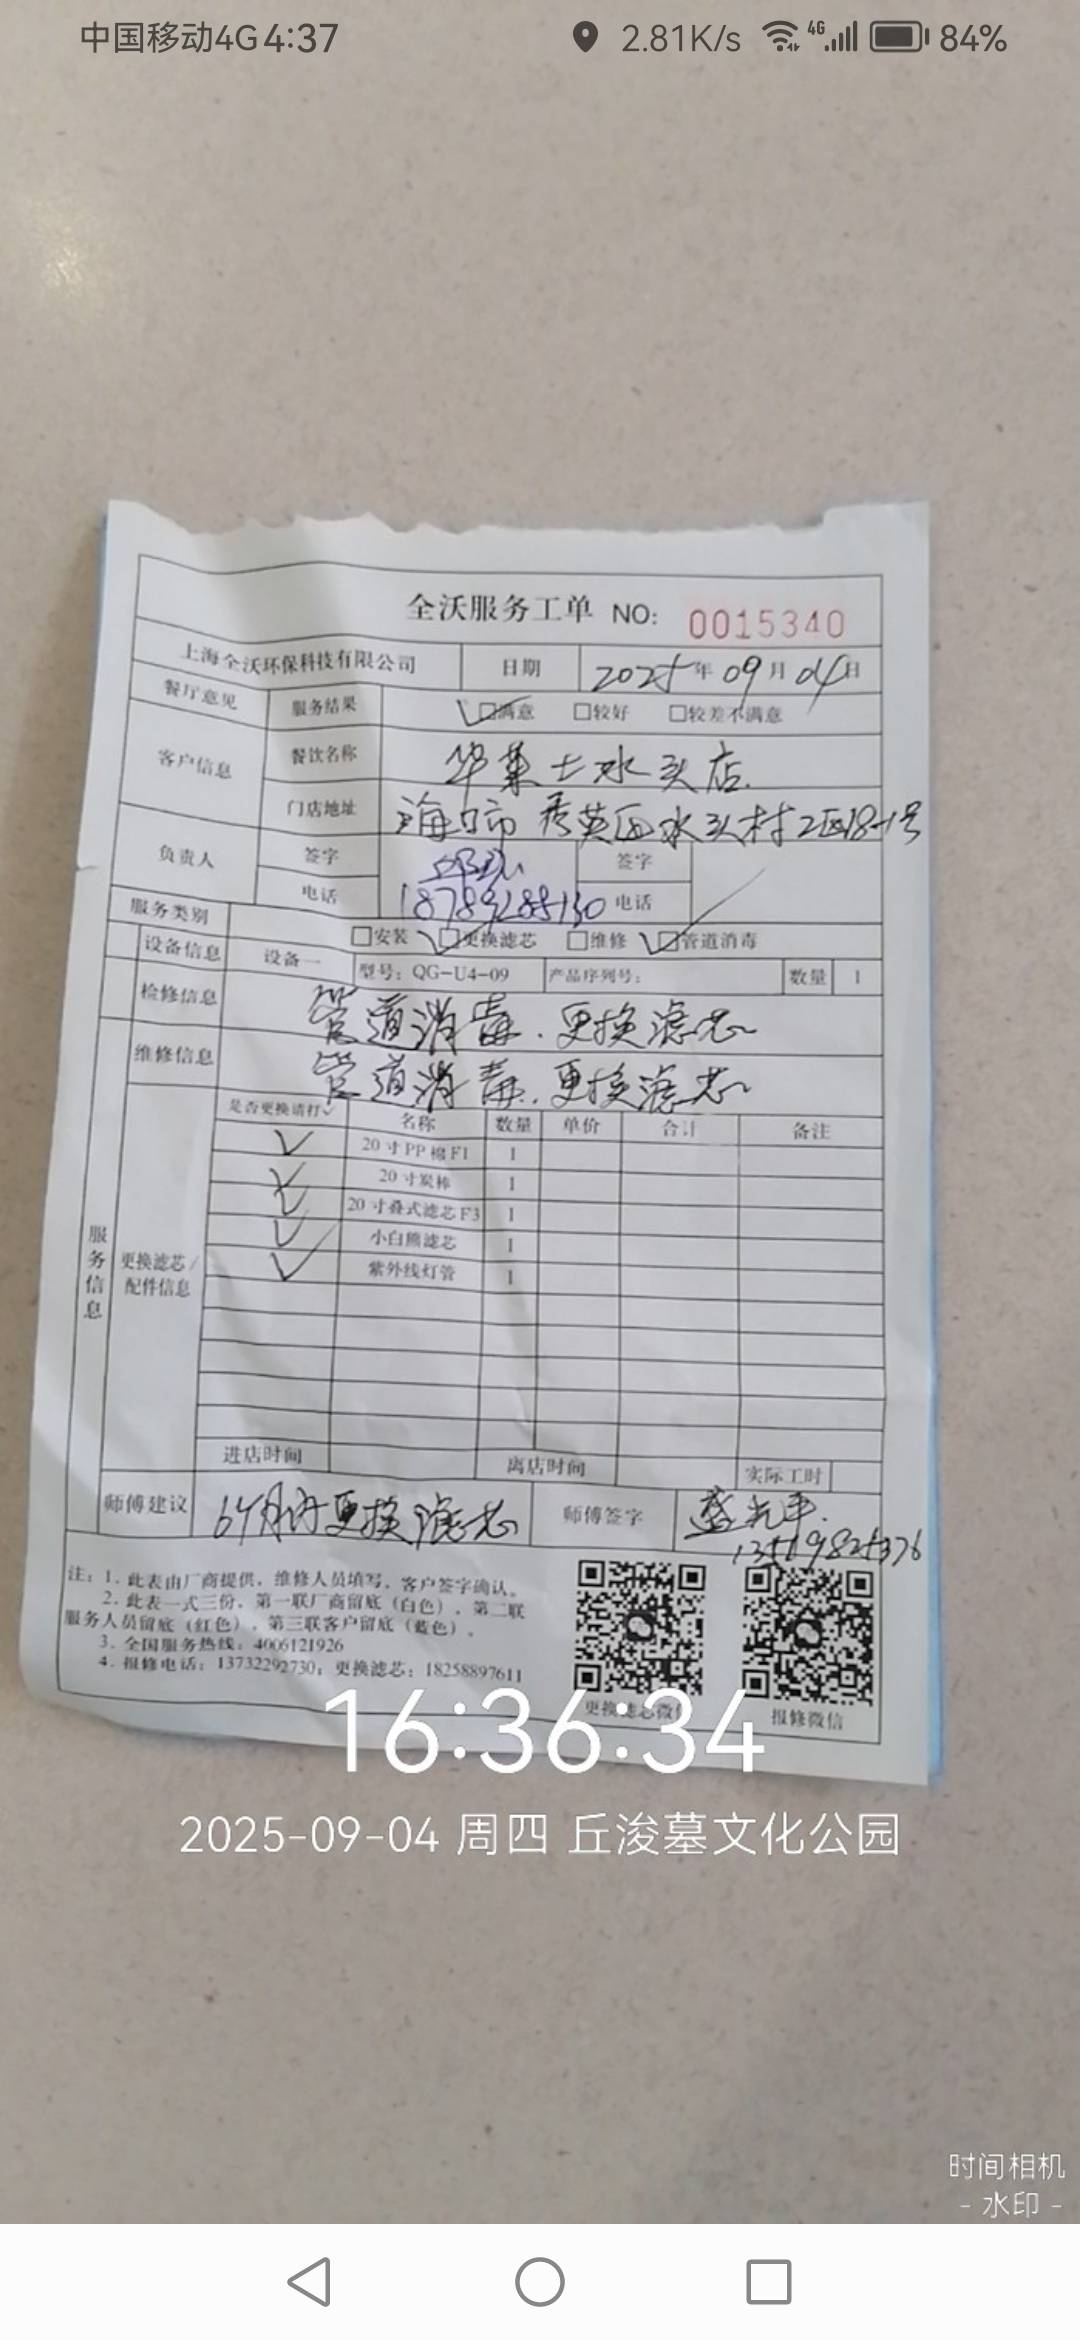 中国移动4G 4:37 2.81K/s 4G 84%
全沃服务工单 NO: 0015340
上海全沃环保科技有限公司 日期 2025年09月04日
餐厅意见 服务结果 满意 较好 较差不满意
客户信息 餐饮名称 华莱士水头店
门店地址 海口市秀英区水头村2区18-1号
负责人 签字 签字
电话 18789288130 电话
服务类别 安装 更换滤芯 维修 管道消毒
设备信息 设备一 型号: QG-U4-09 产品序列号: 数量 1
检修信息 管道消毒.更换滤芯
维修信息 管道消毒.更换滤芯
是否更换请打✓ 名称 数量 单价 合计 备注
✓ 20寸PP棉F1 1
✓ 20寸炭棒 1
✓ 20寸叠式滤芯F3 1
✓ 小白熊滤芯 1
✓ 紫外线灯管 1
服务信息
更换滤芯/
配件信息
进店时间 离店时间 实际工时
师傅建议 6个月内更换滤芯 师傅签字
注: 1. 此表由厂商提供, 维修人员填写, 客户签字确认。
2. 此表一式三份, 第一联厂商留底 (白色), 第二联
服务人员留底 (红色), 第三联客户留底 (蓝色)。
3. 全国服务热线: 4006121926
4. 报修电话: 13732292730; 更换滤芯: 18258897611
更换滤芯微信 报修微信
16:36:34
2025-09-04 周四 丘浚墓文化公园
时间相机
- 水印 -